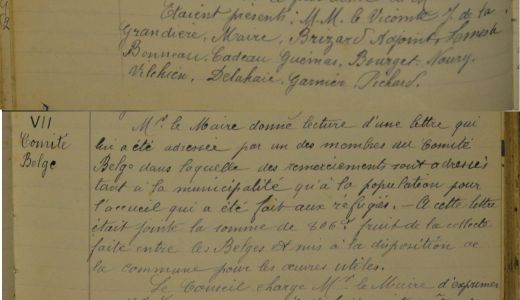 Etaient présents : M.M. le Vicomte J. de la
Grandière, Maire, Brizard Adjoint,
Bonneau, Cadeau, Guemas, Bourget, Noury,
Vilchien, Delahaie, Garnier, Pichard.
VII
Comité
Belge
Mr le Maire donne lecture d'une lettre qui
lui a été adressée par un des membres du Comité
Belge dans laquelle des remerciements sont adressés
tant à la municipalité qu'à la population pour
l'accueil qui a été fait aux réfugiés. - A cette lettre
était jointe la somme de 806f fruit de la collecte
faite entre les Belges et mis à la disposition de
la commune pour les œuvres utiles.
Le Conseil charge Mr le Maire d'exprimer